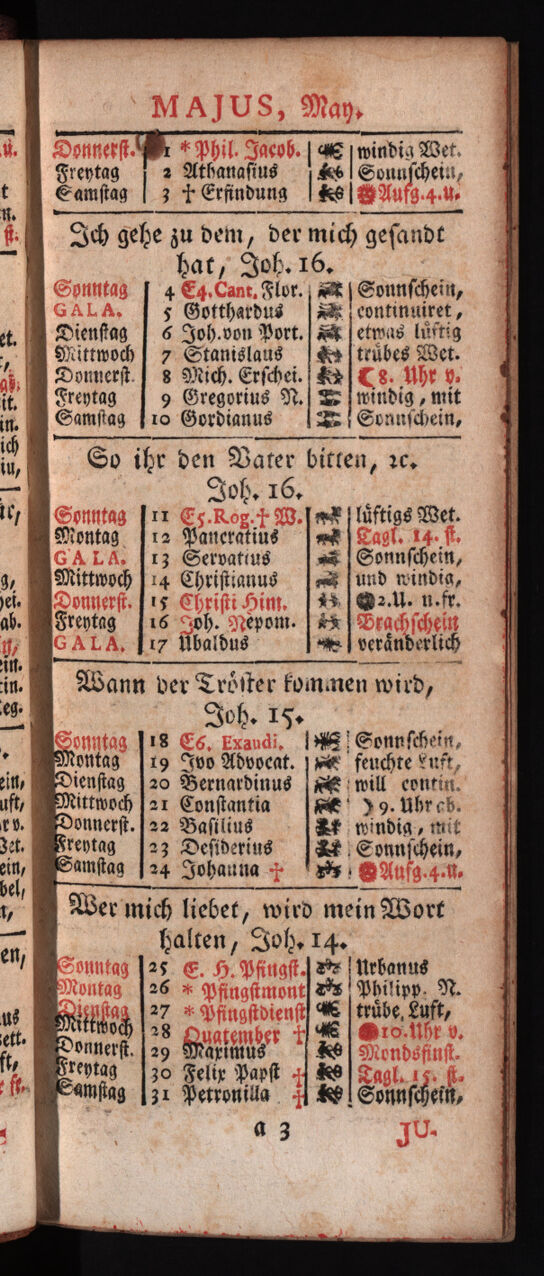 MAJUS, May.
Donnerst. 1 * Phil. Jacob. windig Wet.
Freytag 2 Athanasius Sonnschein,
Samstag 3 † Erfindung Aufg.4.u.
Ich gehe zu dem, der mich gesandt
hat, Joh. 16.
Sonntag 4 E4. Cant. Flor. Sonnschein,
GALA. 5 Gotthardus continuiret,
Dienstag 6 Joh. von Port. etwas lüftig
Mittwoch 7 Stanislaus trübes Wet.
Donnerst. 8 Mich. Erschei. ☾ 8. Uhr v.
Freytag 9 Gregorius N. windig, mit
Samstag 10 Gordianus Sonnschein,
So ihr den Vater bitten, ꝛc.
Joh. 16.
Sonntag 11 E5. Rog. † W. lüftigs Wet.
Montag 12 Pancratius Tagl. 14. st.
GALA. 13 Servatius Sonnschein,
Mittwoch 14 Christianus und windig,
Donnerst. 15 Christi Him. 2.U. n.fr.
Freytag 16 Joh. Nepom. Brachschein
GALA. 17 Ubaldus veränderlich
Wann der Tröster kommen wird,
Joh. 15.
Sonntag 18 E6. Exaudi. Sonnschein,
Montag 19 Ivo Advocat. feuchte Luft,
Dienstag 20 Bernardinus will contin.
Mittwoch 21 Constantia ☽ 9. Uhr ab.
Donnerst. 22 Basilius windig, mit
Freytag 23 Desiderius Sonnschein,
Samstag 24 Johanna † Aufg.4.u.
Wer mich liebet, wird mein Wort
halten, Joh. 14.
Sonntag 25 E. H. Pfingst. Urbanus
Montag 26 * Pfingstmont Philipp. N.
Dienstag 27 * Pfingstdienst trübe Luft,
Mittwoch 28 Quatember † 10. Uhr v.
Donnerst. 29 Maximus Mondsfinst.
Freytag 30 Felix Papst † Tagl. 15. st.
Samstag 31 Petronilla † Sonnschein,
a 3 JU.